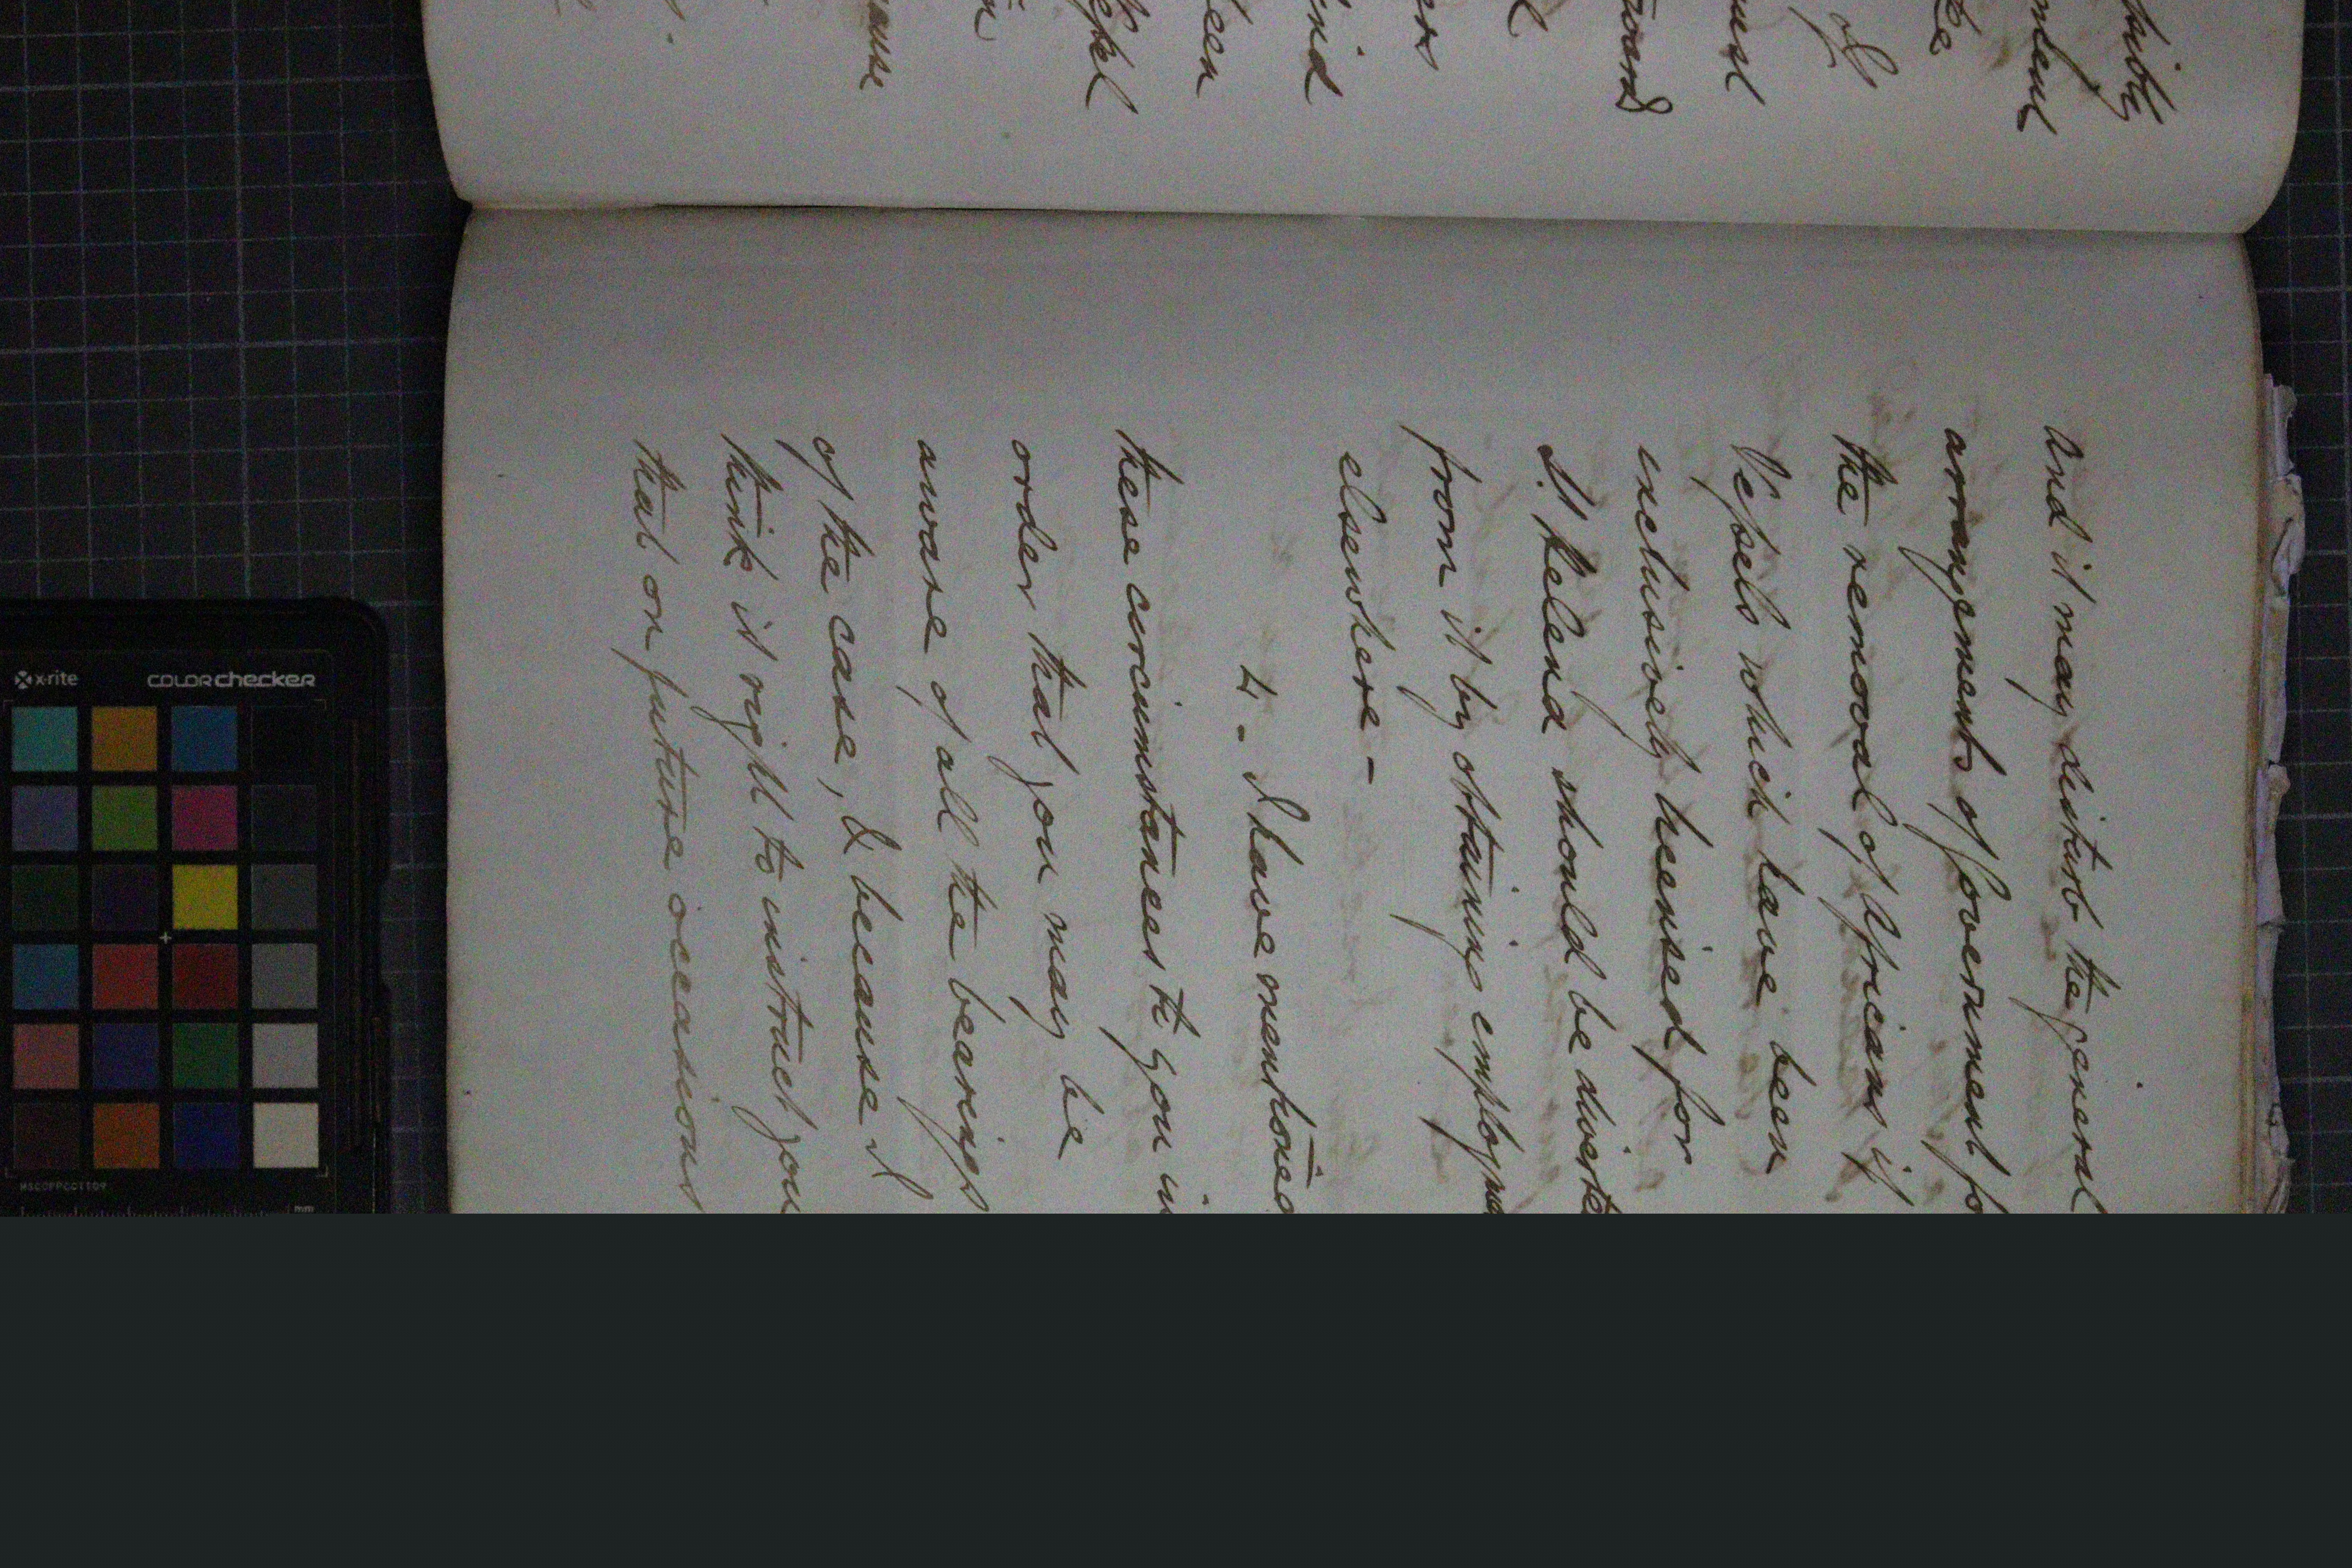 and it may disturb the general
arrangements of Government fo
the removal of Africans if
Vessels which have been
exclusively licensed for
St Helena should be diverte
from it by obtaining employme
elsewhere -
4 - I have mentioned
these circumstances to you in
order that you may be
aware of all the bearings
of the case, & because I
think it right to instruct you
that on future occasions
x-rite
colorchecker
mm